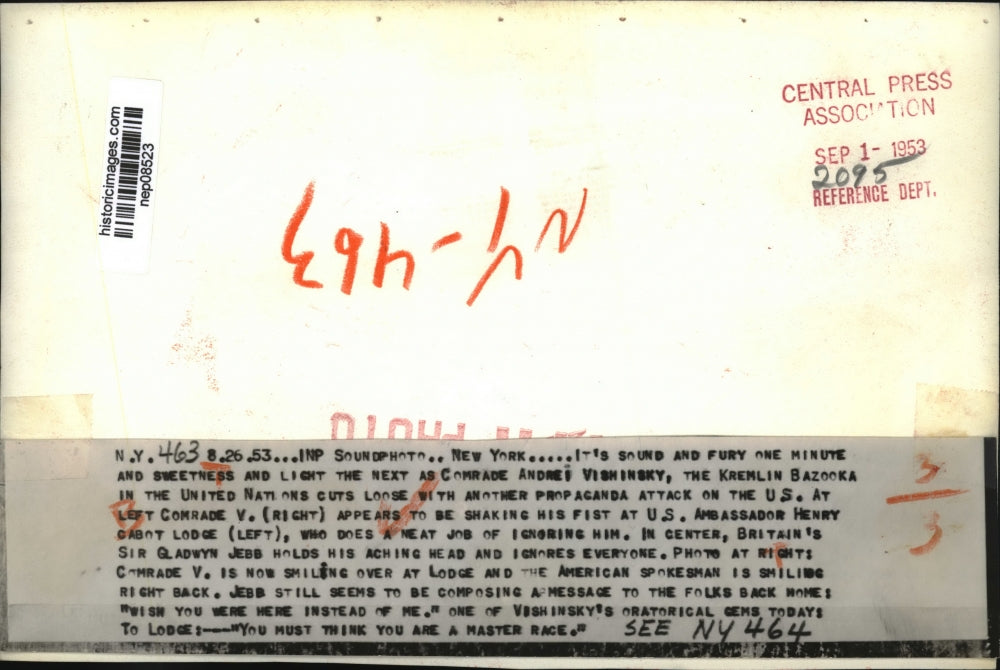 historicimages.com
nep08523
CENTRAL PRESS
ASSOCIATION
SEP 1- 1953
2095
REFERENCE DEPT.
NY-463
N.Y. 463 8.26.53...INP SOUNDPHOTO.. NEW YORK.....IT'S SOUND AND FURY ONE MINUTE
AND SWEETNESS AND LIGHT THE NEXT AS COMRADE ANDREI VISHINSKY, THE KREMLIN BAZOOKA
IN THE UNITED NATIONS CUTS LOOSE WITH ANOTHER PROPAGANDA ATTACK ON THE U.S. AT
LEFT COMRADE V. (RIGHT) APPEARS TO BE SHAKING HIS FIST AT U.S. AMBASSADOR HENRY
CABOT LODGE (LEFT), WHO DOES A NEAT JOB OF IGNORING HIM. IN CENTER, BRITAIN'S
SIR GLADWYN JEBB HOLDS HIS ACHING HEAD AND IGNORES EVERYONE. PHOTO AT RIGHT:
COMRADE V. IS NOW SMILING OVER AT LODGE AND THE AMERICAN SPOKESMAN IS SMILING
RIGHT BACK. JEBB STILL SEEMS TO BE COMPOSING A MESSAGE TO THE FOLKS BACK HOME:
"WISH YOU WERE HERE INSTEAD OF ME." ONE OF VISHINSKY'S ORATORICAL GEMS TODAY:
TO LODGE:---"YOU MUST THINK YOU ARE A MASTER RACE." SEE NY 464
3
3